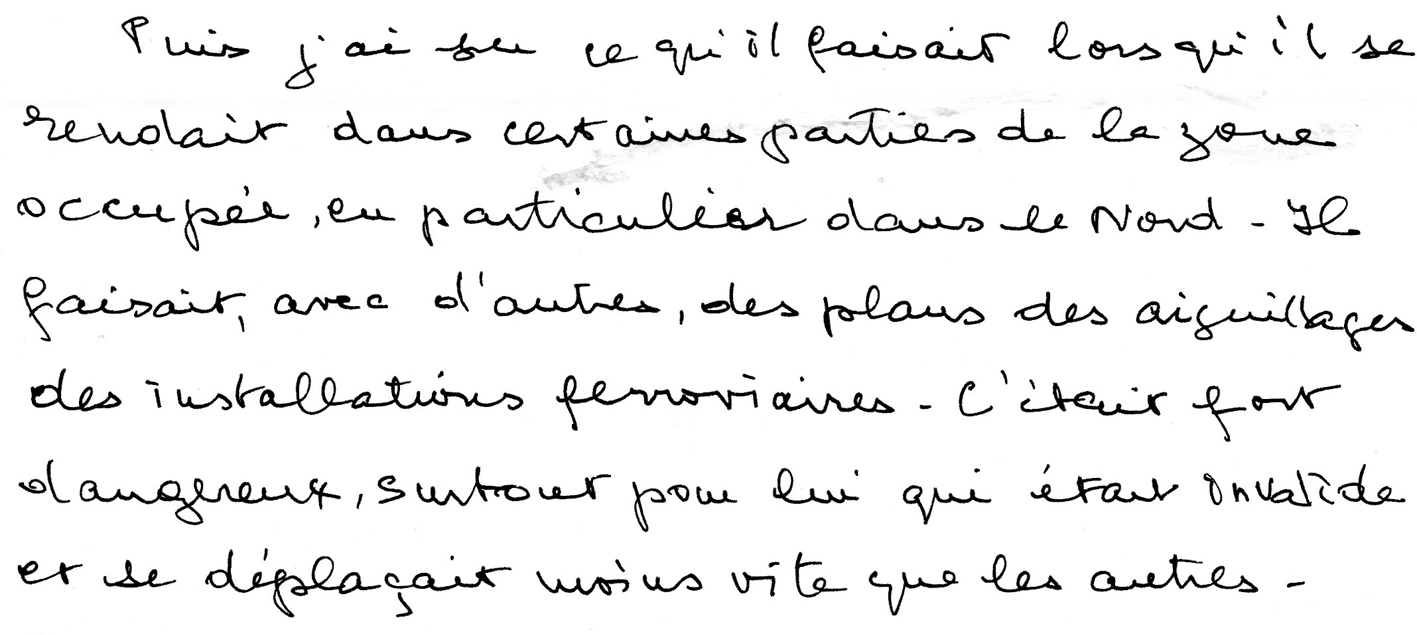 Puis j'ai su ce qu'il faisait lorsqu'il se
rendait dans certaines parties de la zone
occupée, en particulier dans le Nord - Il
faisait, avec d'autres, des plans des aiguillages
des installations ferroviaires - C'était fort
dangereux, surtout pour lui qui était invalide
et se déplaçait moins vite que les autres -